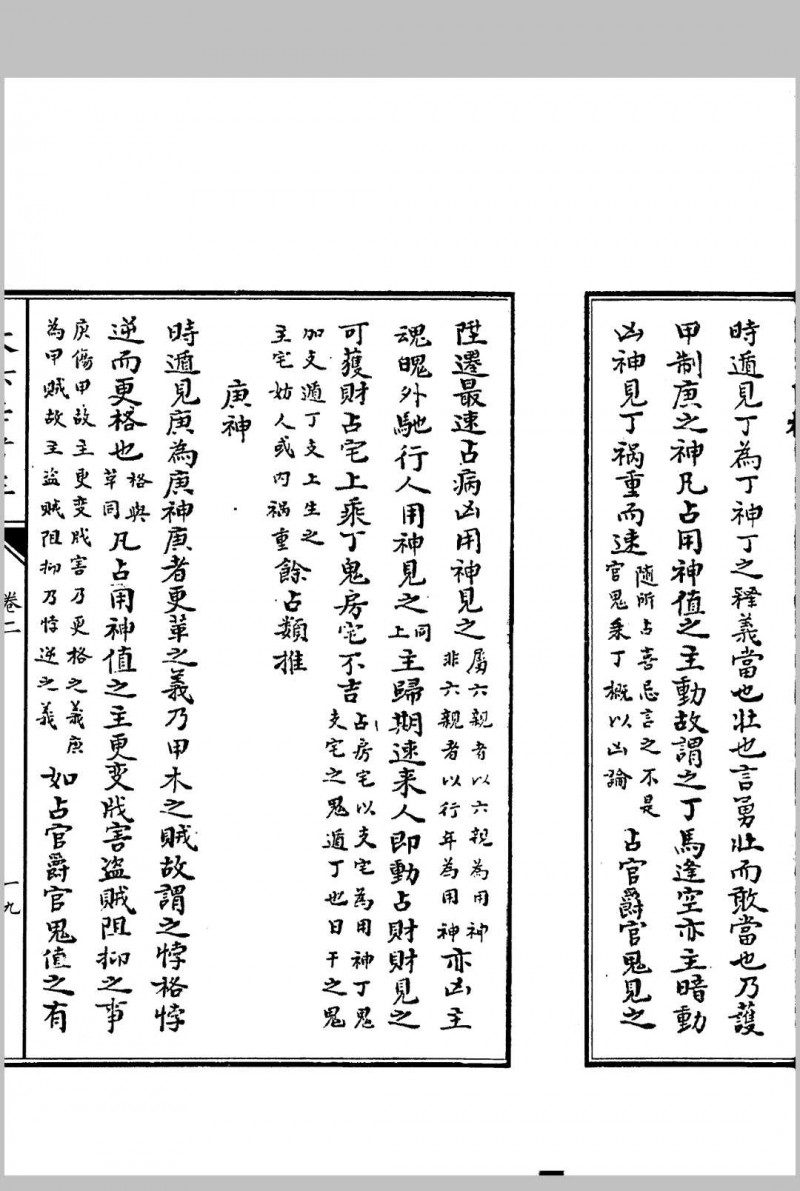 時遁見丁為丁神丁之釋義當也壯也言勇壯而敢當也乃護
甲制庚之神凡占用神值之主動故謂之丁馬逢空亦主暗動
凶神見丁禍重而速隨所占喜忌言之不是官鬼乘丁概以凶論占官爵官鬼見之
陞遷最速占病凶用神見之屬六親者以六親為用神非六親者以行年為用神亦凶主
魂魄外馳行人用神見之同上主歸期速来人即動占財財見之
可獲財占宅上乘丁鬼房宅不吉占房宅以支宅為用神丁鬼支宅之鬼遁丁也日干之鬼
加支遁丁支上生之主宅妨人或内禍重餘占類推
庚神
時遁見庚為庚神庚者更革之義乃甲木之賊故謂之悖格悖
逆而更格也格與革同凡占用神值之主更变戕害盗賊阻抑之事
庚傷甲故主更变戕害乃更格之義庚為甲賊故主盗賊阻抑乃悖逆之義如占官爵官鬼值之有
卷二
一九